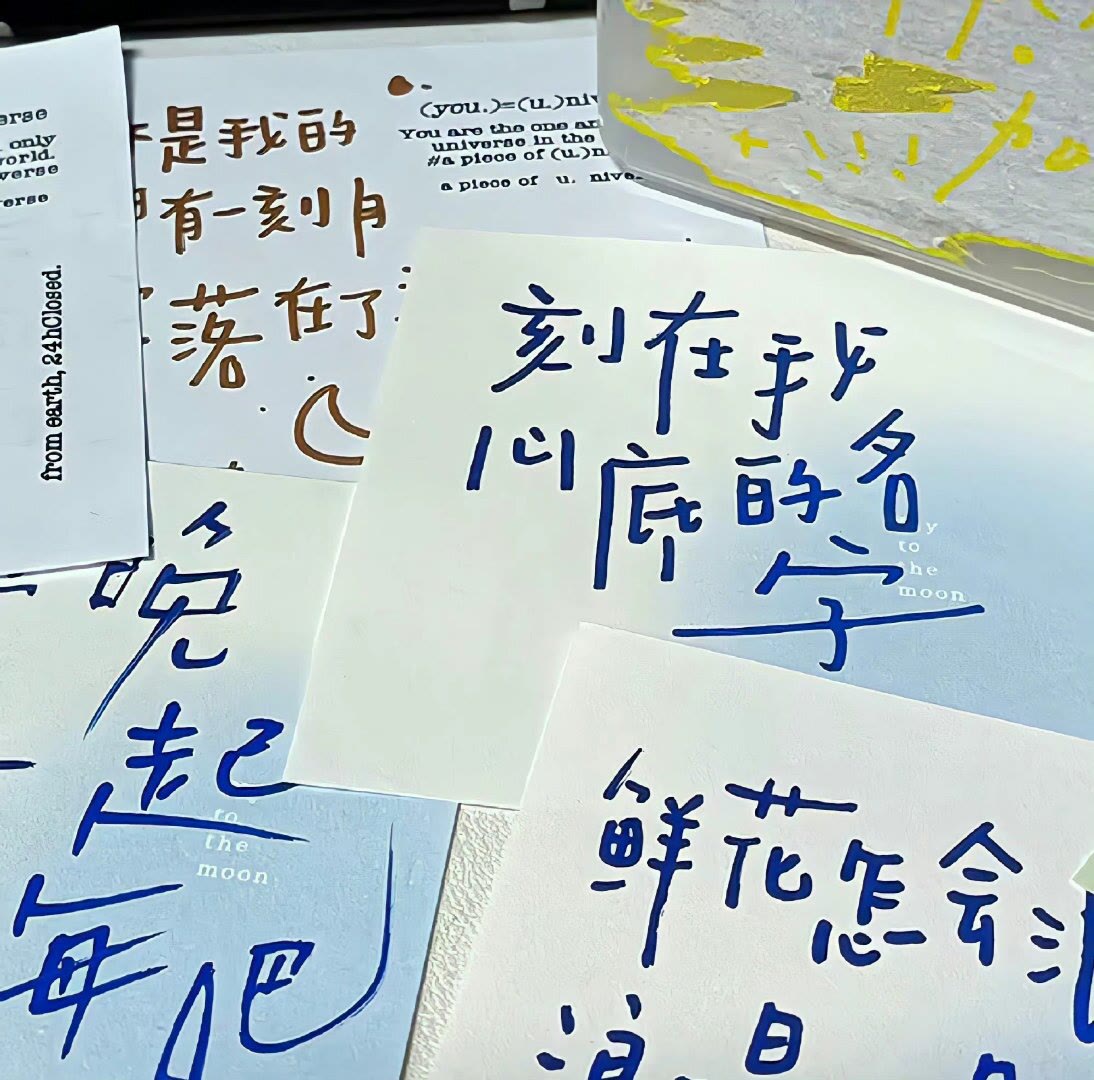 erse
only
world.
verse
erse
from earth, 24hClosed.
是我的
有一刻月
落在了
(you.)=(u.)niv
You are the one an
universe in the
#a piece of (u.)n
a piece of u. nive
刻在我
心底的名
字
y
to
the
moon
晚
一起
每
吧
to
the
moon
鲜花怎会
浪 日